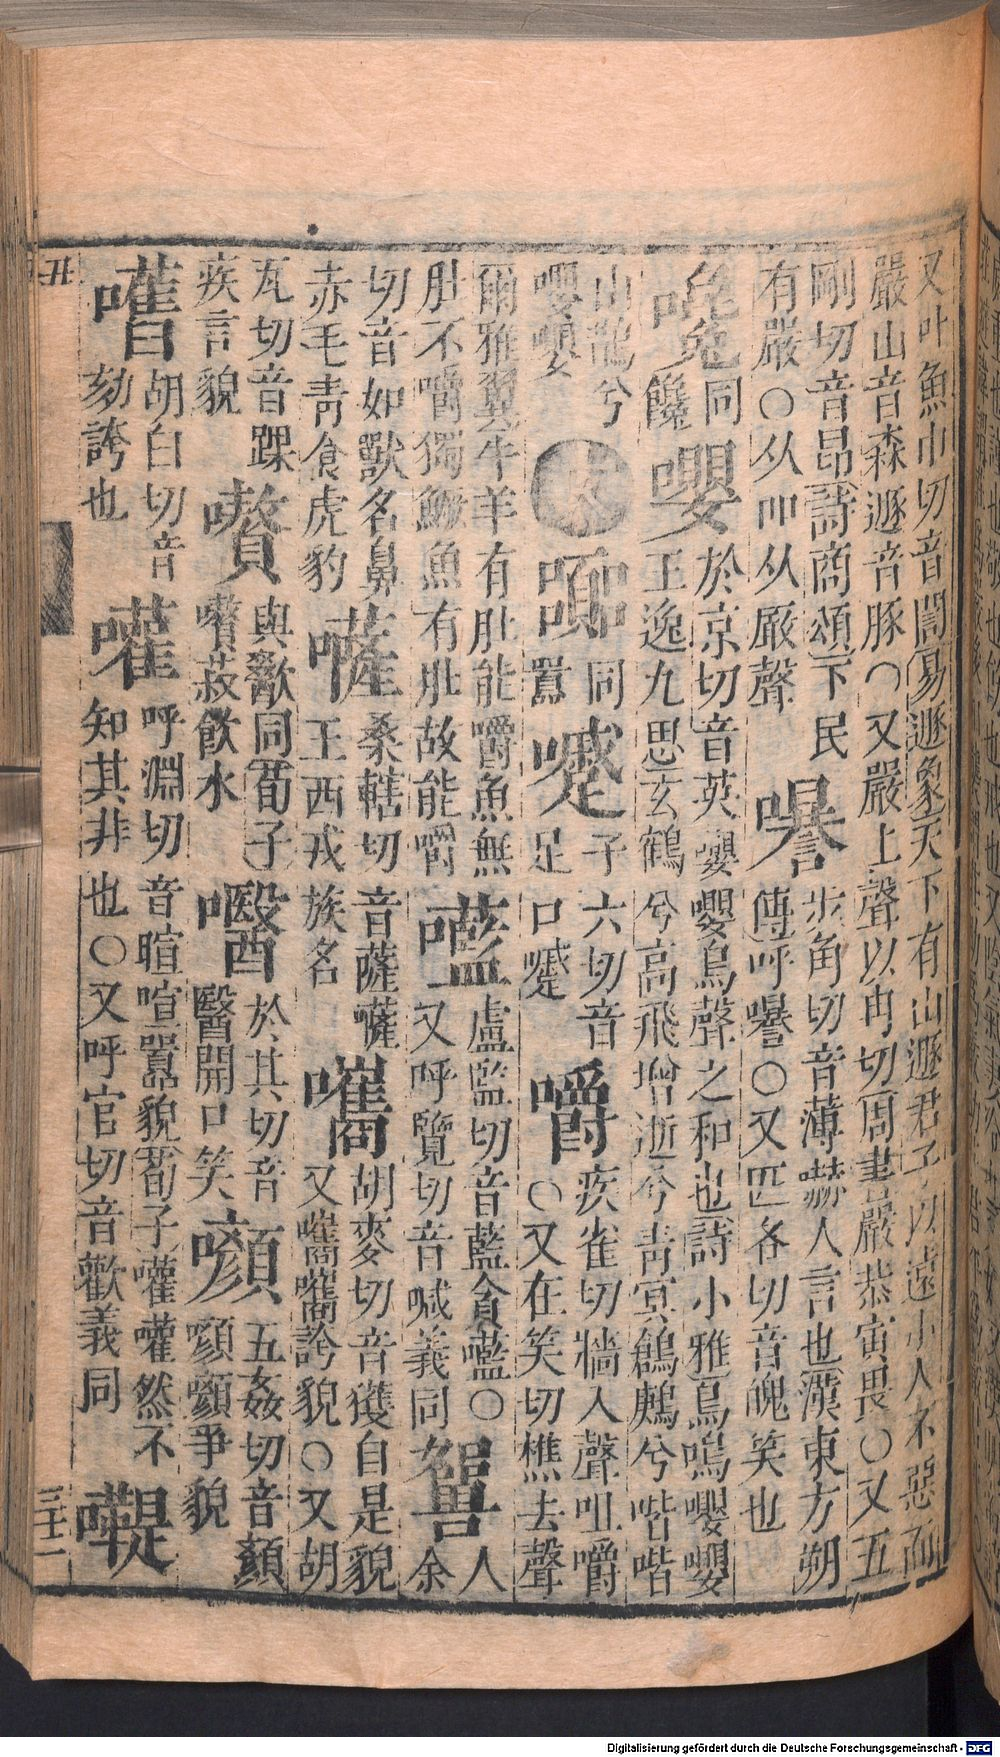 又叶魚巾切音誾易遯象天下有山遯君子以遠小人不惡而
嚴山音森遯音豚○又嚴上聲以冉切周書嚴恭寅畏○又五
剛切音昂詩商頌下民
有嚴○从吅从厰聲
嚗
步角切音薄嚇人言也漢東方朔
傳呼嚗○又匹各切音䰟笑也
嚵
同
饞
嚶
於京切音英嚶嚶鳥聲之和也詩小雅鳥鳴嚶嚶
王逸九思玄鶴兮高飛增逝兮青冥鶬鶊兮喈喈
山鵲兮
嚶嚶
同
囂
嚺
子六切音
足口嚺
嚼
疾雀切牆入聲咀嚼
○又在笑切樵去聲
爾雅翼牛羊有肚能嚼魚無
肚不嚼獨鱖魚有肚故能嚼
嚂
盧監切音藍貪嚂○
又呼覽切音喊義同
人
余
切音如獸名鼻
赤毛青食虎豹
囐
桑轄切音薩囐
王西戎族名
嚿
胡麥切音獲自是貌
又嚄嚄誇貌○又胡
瓦切音踝
疾言貌
與歠同荀子
菽飲水
嚚
於其切音
醫開口笑
噸
五姦切音顏
噸噸爭貌
胡白切音
劾誇也
嚾
呼淵切音暄喧嚻貌荀子嚾嚾然不
知其非也○又呼官切音歡義同
丑
三十一
Digitalisierung gefördert durch die Deutsche Forschungsgemeinschaft - DFG